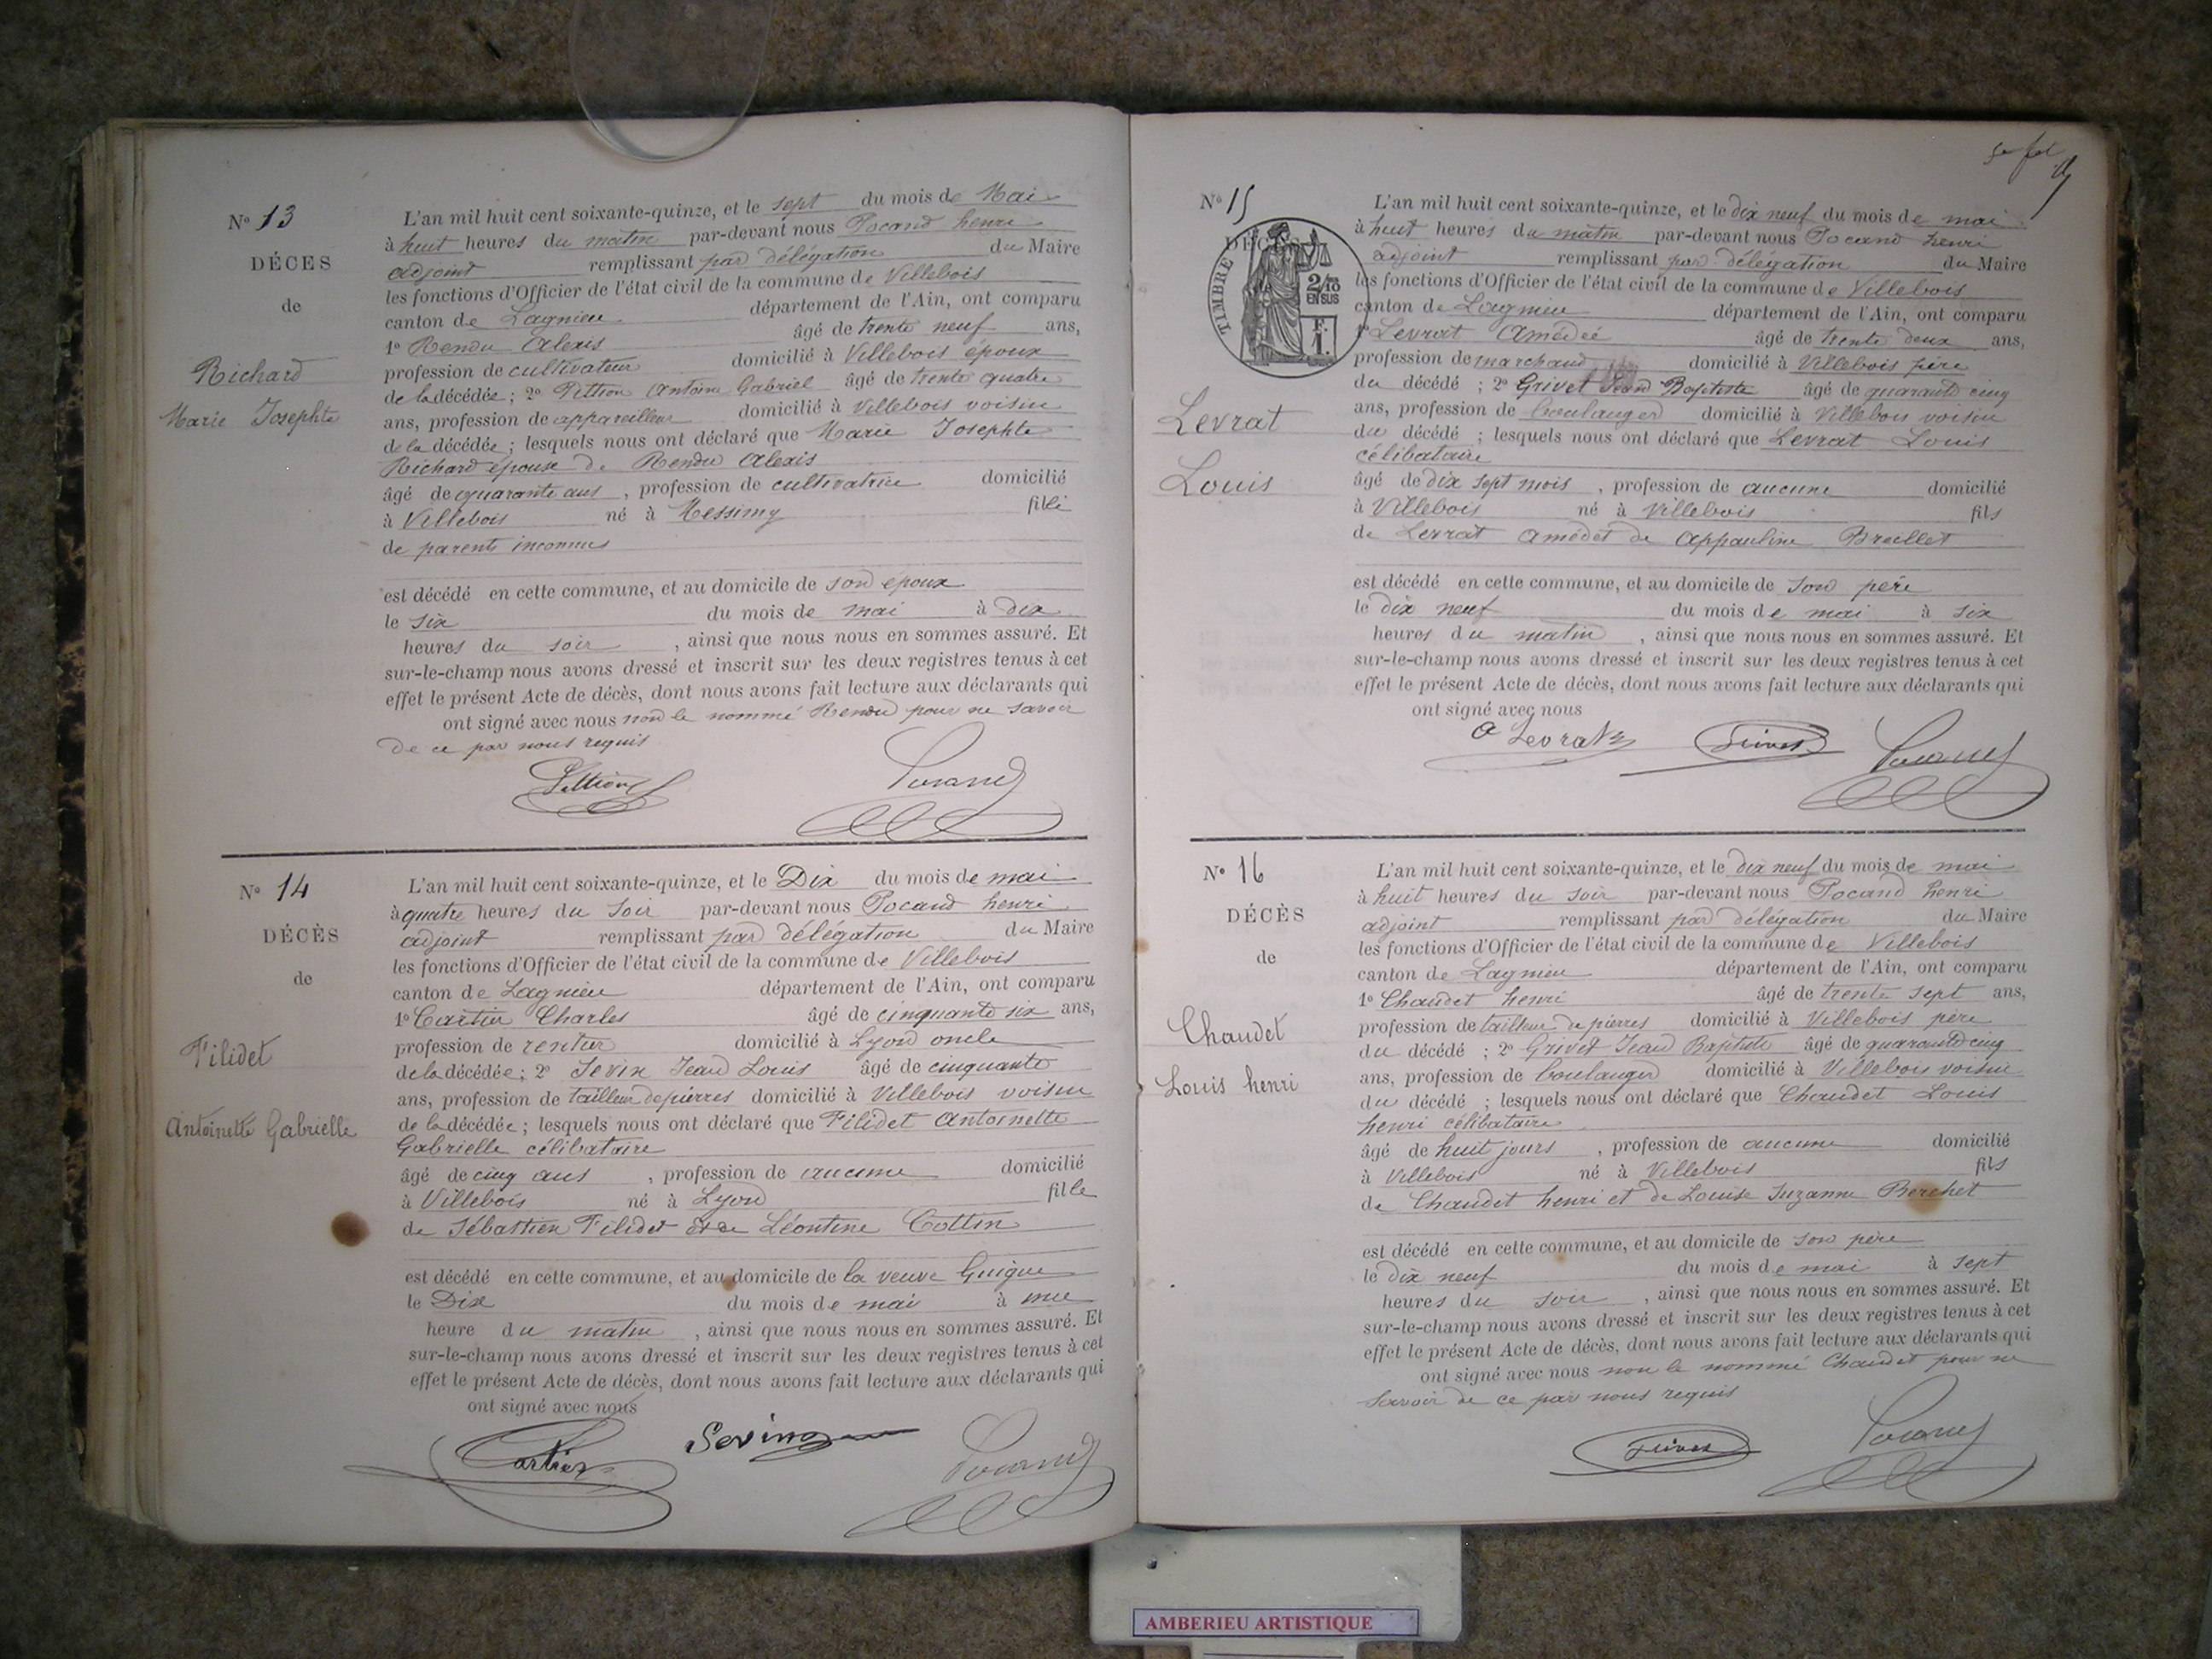 N° 13
DÉCES
de
Richard
Marie Josephte
L'an mil huit cent soixante-quinze, et le sept du mois de Mai
à huit heures du matin par-devant nous Pocand henri
adjoint remplissant par délégation du Maire
les fonctions d'Officier de l'état civil de la commune de Villebois
canton de Lagnieu département de l'Ain, ont comparu
1° Rendu Alexis âgé de trente neuf ans,
profession de cultivateur domicilié à Villebois époux
de la décédée ; 2° Pittion Antoine Gabriel âgé de trente quatre
ans, profession de appareilleur domicilié à Villebois voisin
de la décédée ; lesquels nous ont déclaré que Marie Josephte
Richard épouse de Rendu Alexis
âgé de quarante ans , profession de cultivatrice domicilié
à Villebois né à Messimy fille
de parents inconnus
est décédé en cette commune, et au domicile de son époux
le six du mois de mai à dix
heures du soir , ainsi que nous nous en sommes assuré. Et
sur-le-champ nous avons dressé et inscrit sur les deux registres tenus à cet
effet le présent Acte de décès, dont nous avons fait lecture aux déclarants qui
ont signé avec nous non le nommé Rendu pour ne savoir
de ce par nous requis
Pittion Pocand
N° 14
DÉCÈS
de
Filidet
Antoinette Gabrielle
L'an mil huit cent soixante-quinze, et le Dix du mois de mai
à quatre heures du soir par-devant nous Pocand henri
adjoint remplissant par délégation du Maire
les fonctions d'Officier de l'état civil de la commune de Villebois
canton de Lagnieu département de l'Ain, ont comparu
1° Cartier Charles âgé de cinquante six ans,
profession de rentier domicilié à Lyon oncle
de la décédée ; 2° Sevin Jean Louis âgé de cinquante
ans, profession de tailleur de pierres domicilié à Villebois voisin
de la décédée ; lesquels nous ont déclaré que Filidet Antoinette
Gabrielle célibataire
âgé de cinq ans , profession de aucune domicilié
à Villebois né à Lyon fille
de Sébastien Filidet et de Léontine Cottin
est décédé en cette commune, et au domicile de la veuve Guigue
le Dix du mois de mai à une
heure du matin , ainsi que nous nous en sommes assuré. Et
sur-le-champ nous avons dressé et inscrit sur les deux registres tenus à cet
effet le présent Acte de décès, dont nous avons fait lecture aux déclarants qui
ont signé avec nous
Cartier Sevin Pocand
N° 15
DÉCÈS
TIMBRE
2/10
EN SUS
F.
1.
Levrat
Louis
L'an mil huit cent soixante-quinze, et le dix neuf du mois de mai
à huit heures du matin par-devant nous Pocand henri
adjoint remplissant par délégation du Maire
les fonctions d'Officier de l'état civil de la commune de Villebois
canton de Lagnieu département de l'Ain, ont comparu
1° Levrat Amédée âgé de trente deux ans,
profession de marchand domicilié à Villebois père
du décédé ; 2° Grivet Jean Baptiste âgé de quarante cinq
ans, profession de boulanger domicilié à Villebois voisin
du décédé ; lesquels nous ont déclaré que Levrat Louis
célibataire
âgé de dix sept mois , profession de aucune domicilié
à Villebois né à Villebois fils
de Levrat Amédét de Appauline Braillet
est décédé en cette commune, et au domicile de son père
le dix neuf du mois de mai à six
heures du matin , ainsi que nous nous en sommes assuré. Et
sur-le-champ nous avons dressé et inscrit sur les deux registres tenus à cet
effet le présent Acte de décès, dont nous avons fait lecture aux déclarants qui
ont signé avec nous
A Levrat Grivet Pocand
N° 16
DÉCÈS
de
Chaudet
Louis henri
L'an mil huit cent soixante-quinze, et le dix neuf du mois de mai
à huit heures du soir par-devant nous Pocand henri
adjoint remplissant par délégation du Maire
les fonctions d'Officier de l'état civil de la commune de Villebois
canton de Lagnieu département de l'Ain, ont comparu
1° Chaudet henri âgé de trente sept ans,
profession de tailleur de pierres domicilié à Villebois père
du décédé ; 2° Grivet Jean Baptiste âgé de quarante cinq
ans, profession de boulanger domicilié à Villebois voisin
du décédé ; lesquels nous ont déclaré que Chaudet Louis
henri célibataire
âgé de huit jours , profession de aucune domicilié
à Villebois né à Villebois fils
de Chaudet henri et de Louise Suzanne Berchet
est décédé en cette commune, et au domicile de son père
le dix neuf du mois de mai à sept
heures du soir , ainsi que nous nous en sommes assuré. Et
sur-le-champ nous avons dressé et inscrit sur les deux registres tenus à cet
effet le présent Acte de décès, dont nous avons fait lecture aux déclarants qui
ont signé avec nous non le nommé Chaudet pour ne
savoir de ce par nous requis
Grivet Pocand
AMBERIEU ARTISTIQUE